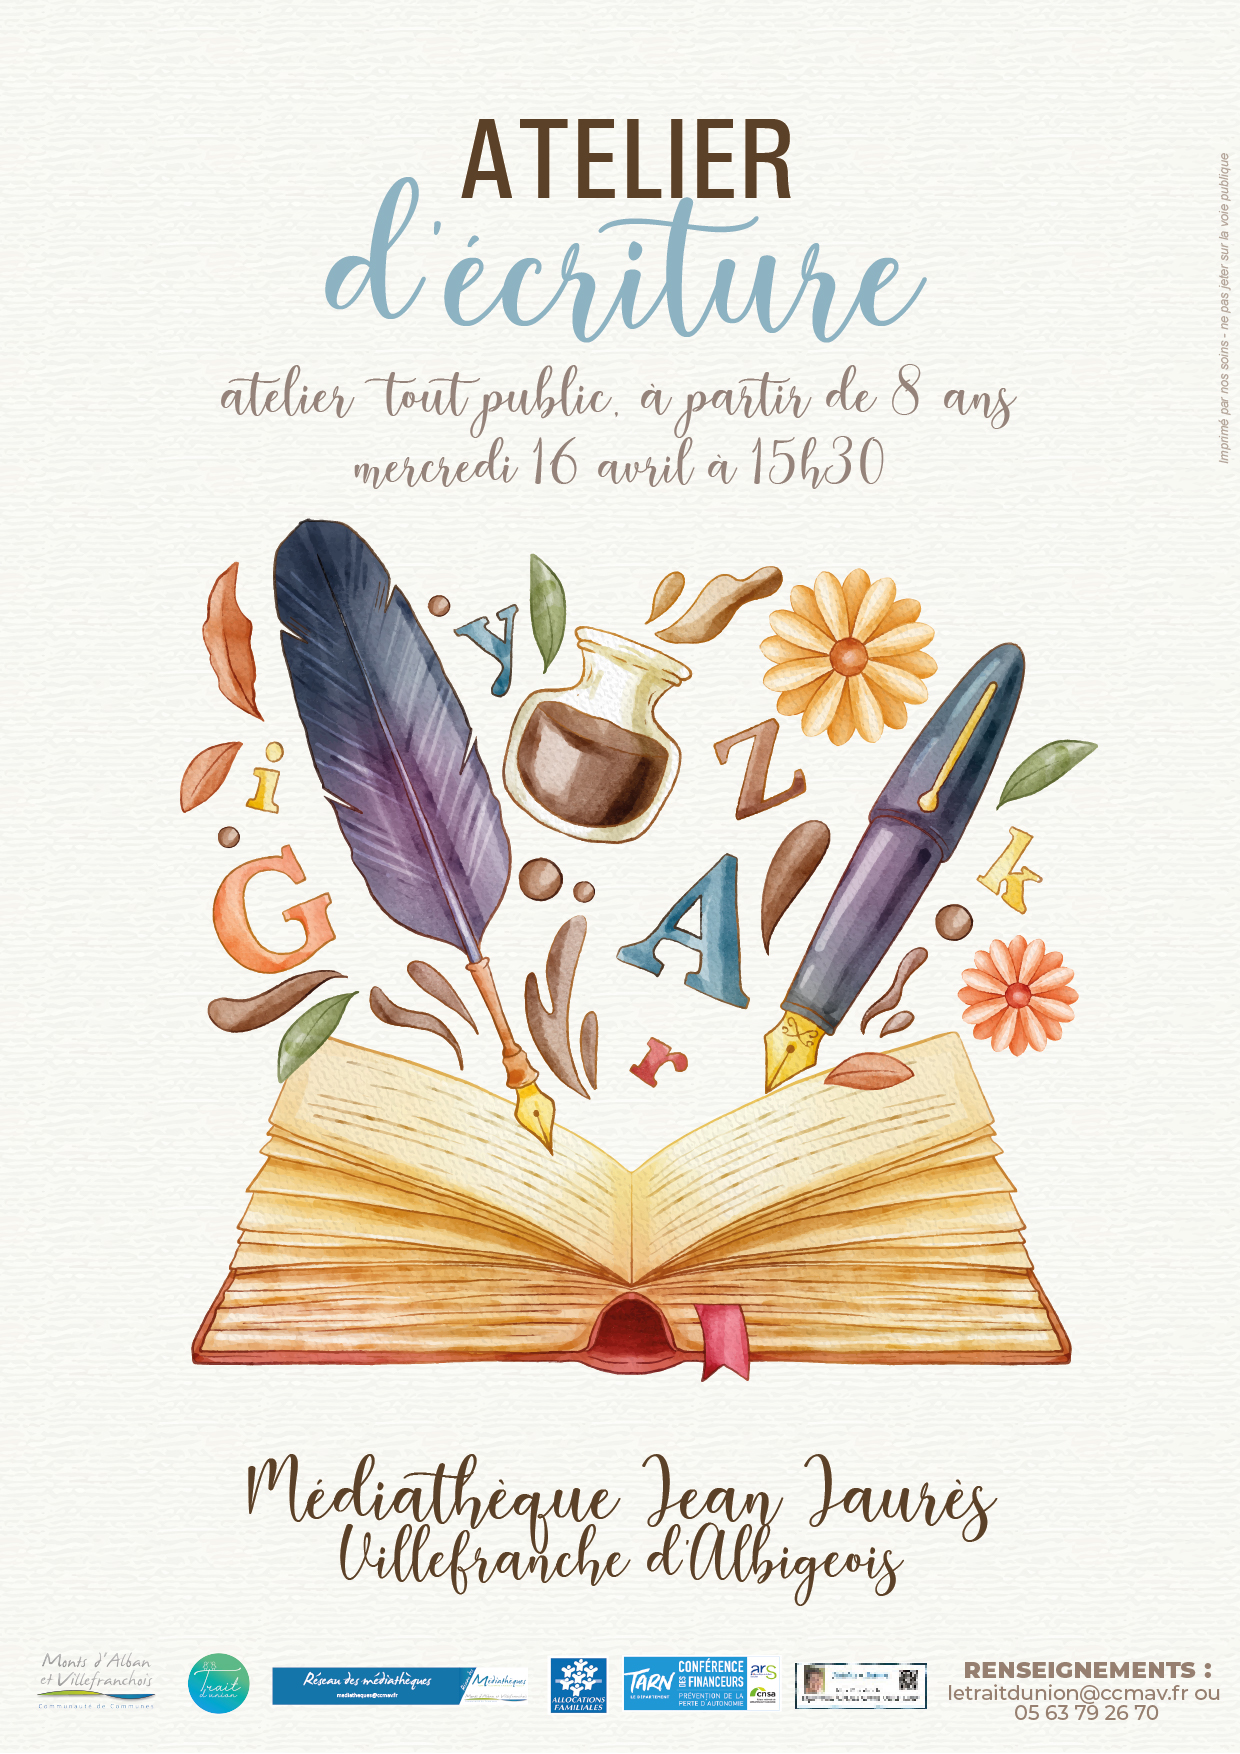 ATELIER
d'écriture
atelier tout public, à partir de 8 ans
mercredi 16 avril à 15h30
Imprimé par nos soins - ne pas jeter sur la voie publique
y
i
Z
G
A
k
r
Médiathèque Jean Jaurès
Villefranche d'Albigeois
Monts d'Alban
et Villefranchois
Communauté de Communes
Trait
d'union
Réseau des médiathèques
mediatheques@ccmav.fr
Médiathèques
ALLOCATIONS
FAMILIALES
TARN
LE DÉPARTEMENT
CONFÉRENCE
DES FINANCEURS
PRÉVENTION DE LA
PERTE D'AUTONOMIE
ars
cnsa
RENSEIGNEMENTS :
letraitdunion@ccmav.fr ou
05 63 79 26 70